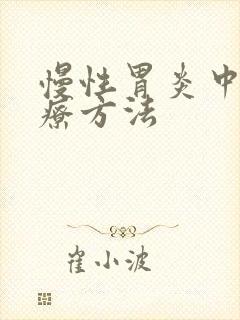 慢性胃炎中
療方法
崔小波